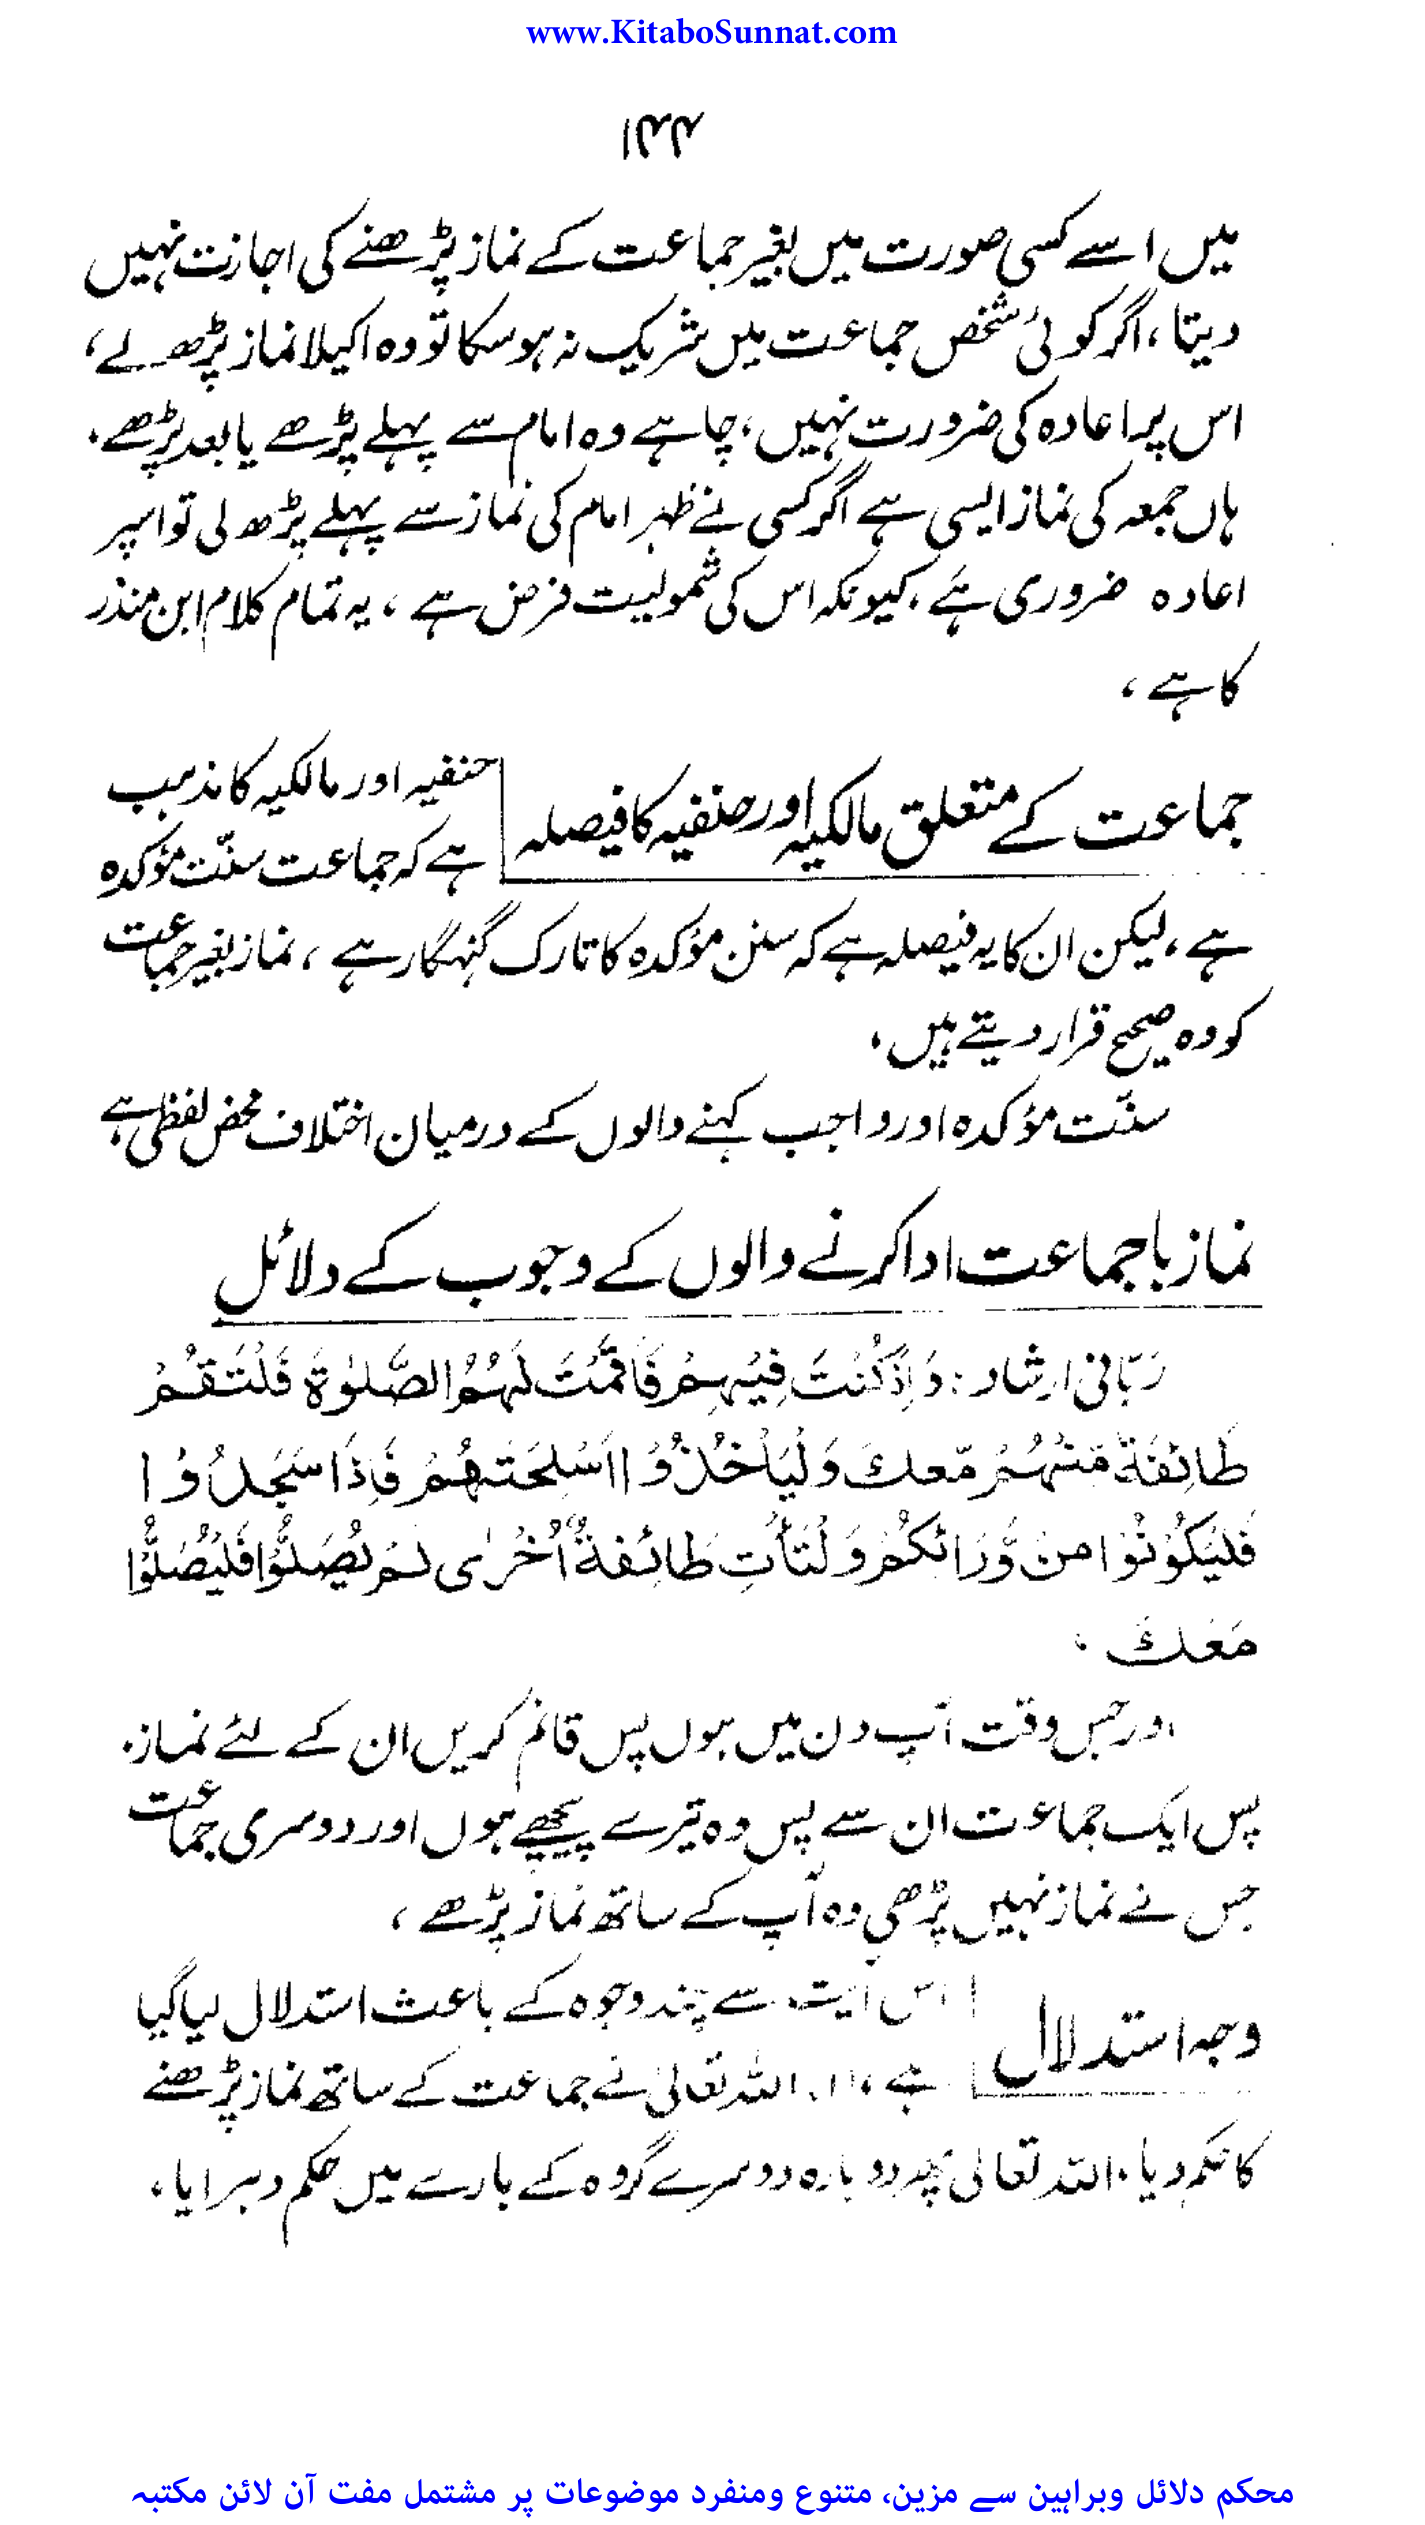 www.KitaboSunnat.com
۱۴۴
میں اسے کسی صورت میں بغیر جماعت کے نماز پڑھنے کی اجازت نہیں
دیتا ، اگر کوئی شخص جماعت میں شریک نہ ہو سکا تو وہ اکیلا نماز پڑھ لے ،
اس پر اعادہ کی ضرورت نہیں ، چاہے وہ امام سے پہلے پڑھے یا بعد پڑھے ،
ہاں جمعہ کی نماز ایسی ہے اگر کسی نے ظہر امام کی نماز سے پہلے پڑھ لی تو اسپر
اعادہ ضروری ہے ، کیونکہ اس کی شمولیت فرض ہے ، یہ تمام کلام ابن منذر
کا ہے ،
جماعت کے متعلق مالکیہ اور حنفیہ کا فیصلہ
حنفیہ اور مالکیہ کا مذہب
ہے کہ جماعت سنّت مؤکدہ
ہے ، لیکن ان کا یہ فیصلہ ہے کہ سنن مؤکدہ کا تارک گنہگار ہے ، نماز بغیر جماعت
کو وہ صحیح قرار دیتے ہیں ،
سنّت مؤکدہ اور واجب کہنے والوں کے درمیان اختلاف محض لفظی ہے
نماز باجماعت ادا کرنے والوں کے وجوب کے دلائل
رَبّانی ارشاد : وَاِذَ کُنْتَ فِیْہِمْ فَاَقَمْتَ لَہُمُ الصَّلٰوۃَ فَلْتَقُمْ
طَائِفَۃٌ مِّنْہُمْ مَّعَكَ وَلْیَاْخُذُوْا اَسْلِحَتَہُمْ فَاِذَا سَجَدُوْا
فَلْیَکُوْنُوْا مِنْ وَّرَائِکُمْ وَلْتَأْتِ طَائِفَۃٌ اُخْرٰی لَمْ یُصَلُّوْا فَلْیُصَلُّوْا
مَعَكَ ،
اور جس وقت آپ دن میں ہوں پس قائم کریں ان کے لئے نماز ،
پس ایک جماعت ان سے پس وہ تیرے پیچھے ہوں اور دوسری جماعت
جس نے نماز نہیں پڑھی وہ آپ کے ساتھ نماز پڑھے ،
وجہ استدلال
اس آیت سے چند وجوہ کے باعث استدلال لیا گیا
ہے ، ۱. اللہ تعالیٰ نے جماعت کے ساتھ نماز پڑھنے
کا حکم دیا ، اللہ تعالیٰ پھر دوبارہ دوسرے گروہ کے بارے میں حکم دہرایا ،
محکم دلائل وبراہین سے مزین، متنوع ومنفرد موضوعات پر مشتمل مفت آن لائن مکتبہ